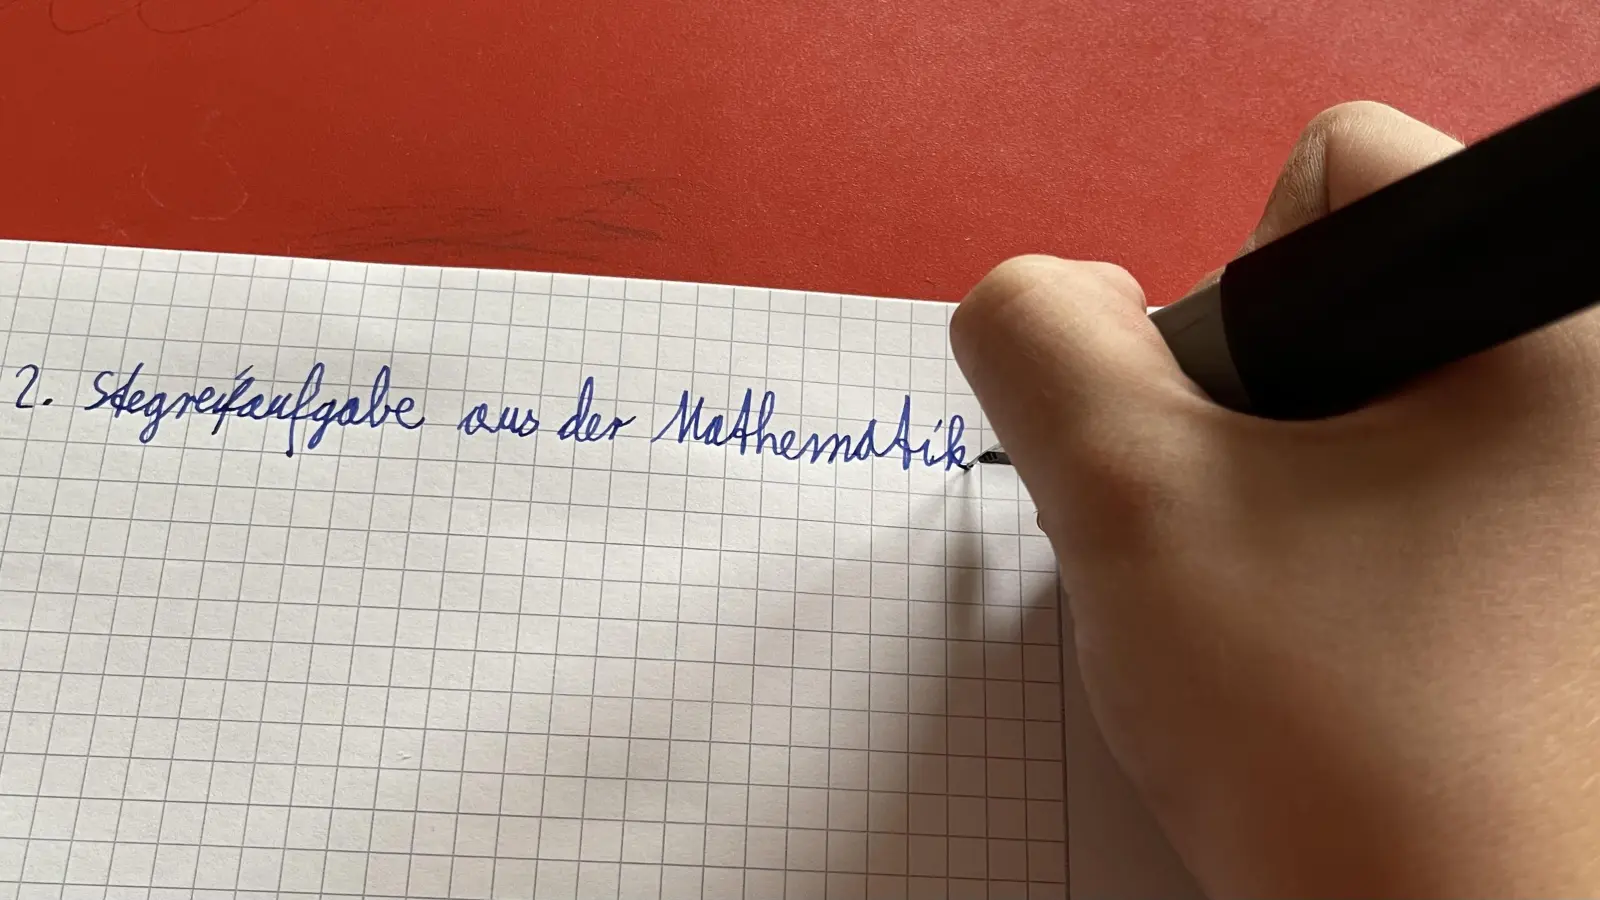 2. Stegreifaufgabe aus der Mathematik